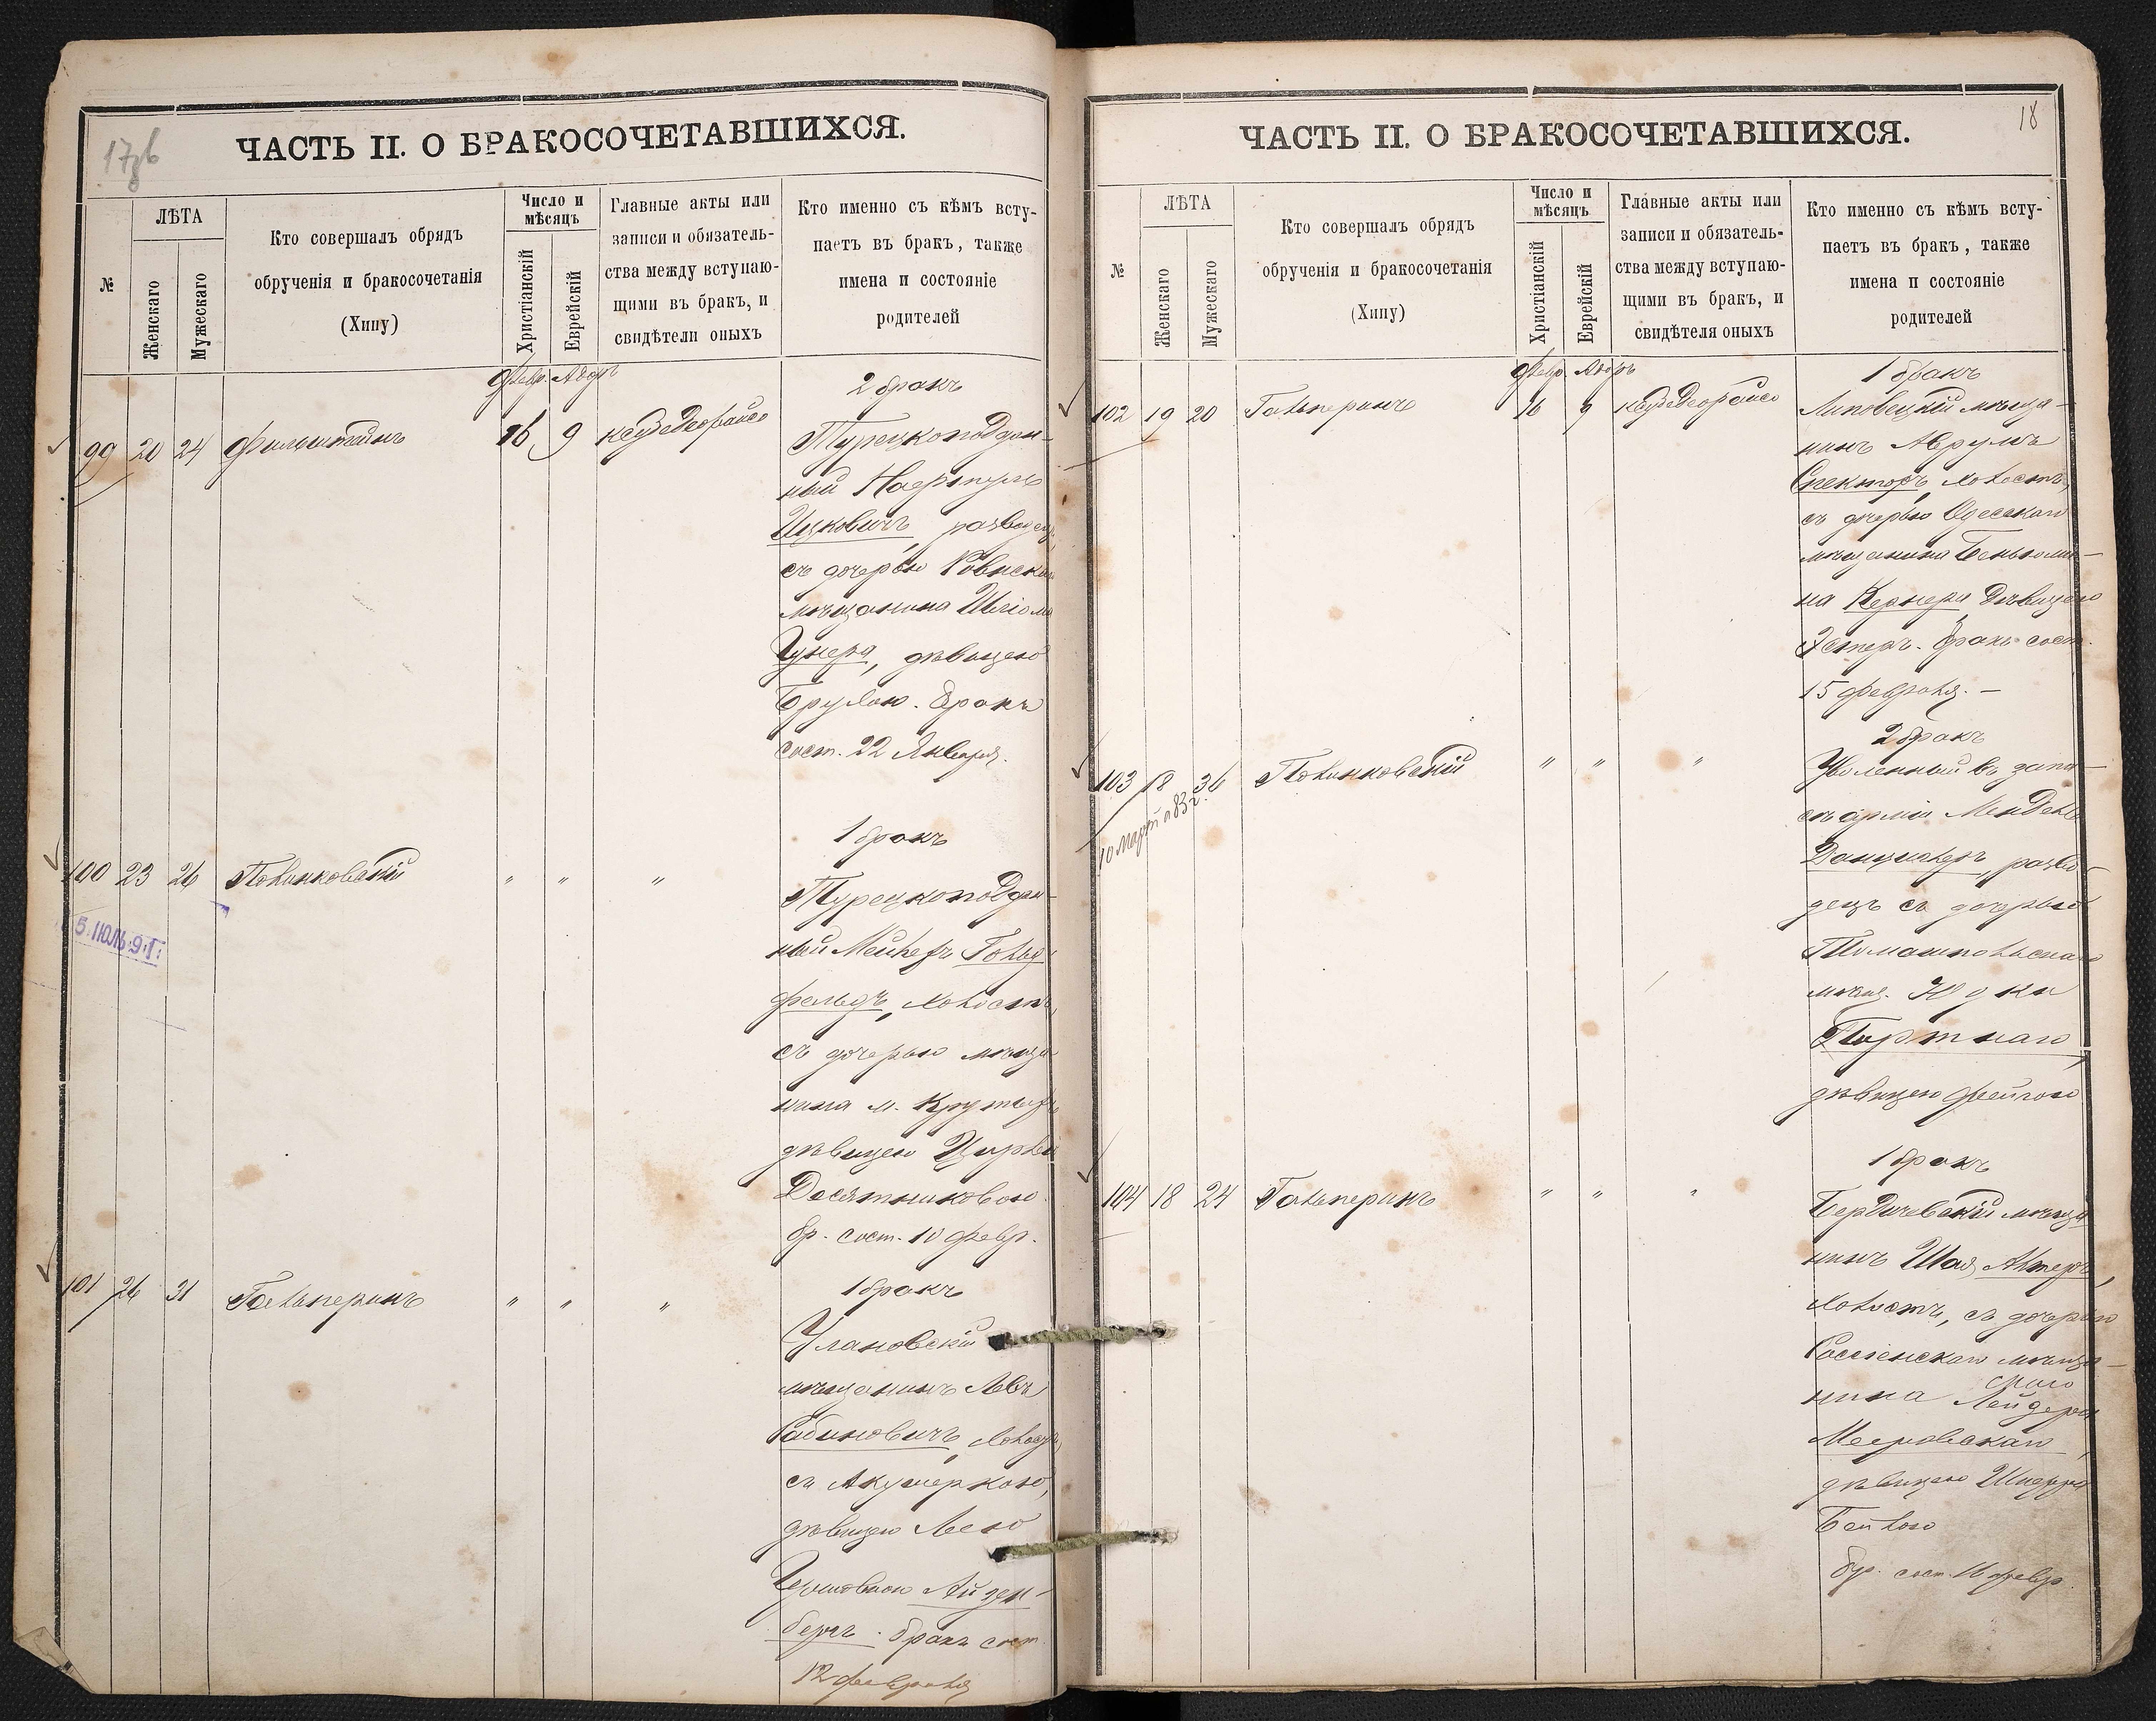 17 об
ЧАСТЬ II. О БРАКОСОЧЕТАВШИХСЯ.
№
ЛѢТА
Женскаго
Мужескаго
Кто совершалъ обрядъ
обрученія и бракосочетанія
(Хипу)
Число и
мѣсяцъ
Христіанскій
Еврейскій
Главные акты или
записи и обязатель-
ства между вступаю-
щими въ бракъ, и
свидѣтели оныхъ
Кто именно съ кѣмъ всту-
паетъ въ бракъ, также
имена и состояніе
родителей
Февр. Адоръ
2 бракъ
99 20 24 Фильштейнъ 16 9
Турецкоподдан-
ный
Ицковичъ, разведец,
съ дочерью Ровнска
мѣщанина Шліома
девицею
Брухою. Бракъ
сост. 22 Января.
1 бракъ
100 23 26 Полинковскій " " "
5. ІЮЛЬ. 9. Г.
Турецкоподдан-
ный Мейлехъ Гольд
фельдъ, холостъ,
съ дочерью мѣща
нина м. Крутыхъ
дѣвицею Цирлей
Десятниковою.
бр. сост. 10 февр.
1 бракъ
101 26 31 Гальперинъ " " "
Улановскій
мѣщанинъ Левъ
Рабиновичъ, холост,
съ Акушеркою,
дѣвицею Леею
Гершовною Айзен-
бергъ. бракъ сост.
12 февраля
18
ЧАСТЬ II. О БРАКОСОЧЕТАВШИХСЯ.
№
ЛѢТА
Женскаго
Мужескаго
Кто совершалъ обрядъ
обрученія и бракосочетанія
(Хипу)
Число и
мѣсяцъ
Христіанскій
Еврейскій
Главные акты или
записи и обязатель-
ства между вступаю-
щими въ бракъ, и
свидѣтеля оныхъ
Кто именно съ кѣмъ всту-
паетъ въ бракъ, также
имена и состояніе
родителей
Февр. Адоръ
1 бракъ
102 19 20 Гальперинъ 16 9
Липовецкій мѣща-
нинъ Аврумъ
Спекторъ, холостъ,
съ дочерью Одесскаго
мѣщанина Беньоми-
на Кернера дѣвицею
Эстеръ. Бракъ сост.
15 февраля. -
2 бракъ
103 18 36 Полинковскій " " "
10 Марта 83 г.
Уволенный въ запа-
съ арміи Мендель
Данцигеръ, разво-
децъ съ дочерью
Томашпольскаго
мѣщ. Юдки
Портнаго,
дѣвицею Фейгою
1 бракъ
104 18 24 Гальперинъ " " "
Бердичевскій мѣща
нинъ Шая Альтеръ,
холостъ, съ дочерью
Россіенскаго мѣща-
нина Лейзера
Мееровскаго,
дѣвицею
Бейлою
бр. сост. 16 февр.